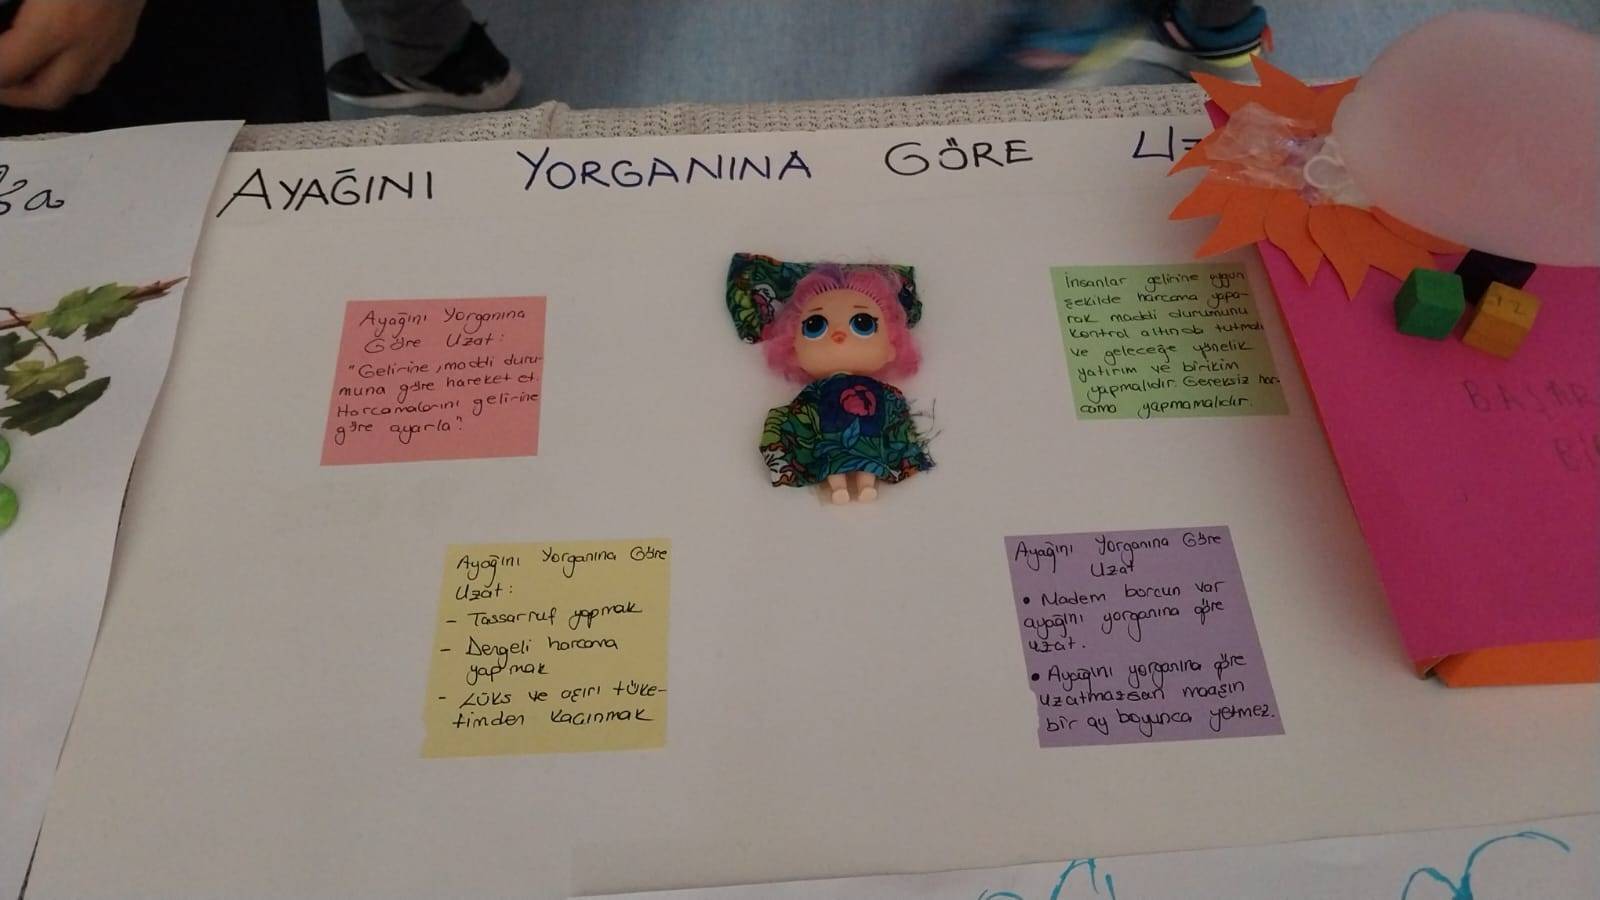 AYAĞINI YORGANINA GÖRE UZ
Ayağını Yorganına
Göre Uzat:
"Gelirine, maddi duru-
muna göre hareket et.
Harcamalarını gelirine
göre ayarla."
İnsanlar gelirine uygun
şekilde harcama yapa-
rak maddi durumunu
kontrol altında tutmalı
ve geleceğe yönelik
yatırım ve birikim
yapmalıdır. Gereksiz har-
cama yapmamalıdır.
Ayağını Yorganına Göre
Uzat:
- Tassarruf yapmak
- Dengeli harcama
yapmak
- Lüks ve aşırı tüke-
timden kaçınmak
Ayağını Yorganına Göre
Uzat
• Madem borcun var
ayağını yorganına göre
uzat.
• Ayağını yorganına göre
uzatmazsan maaşın
bir ay boyunca yetmez.
12